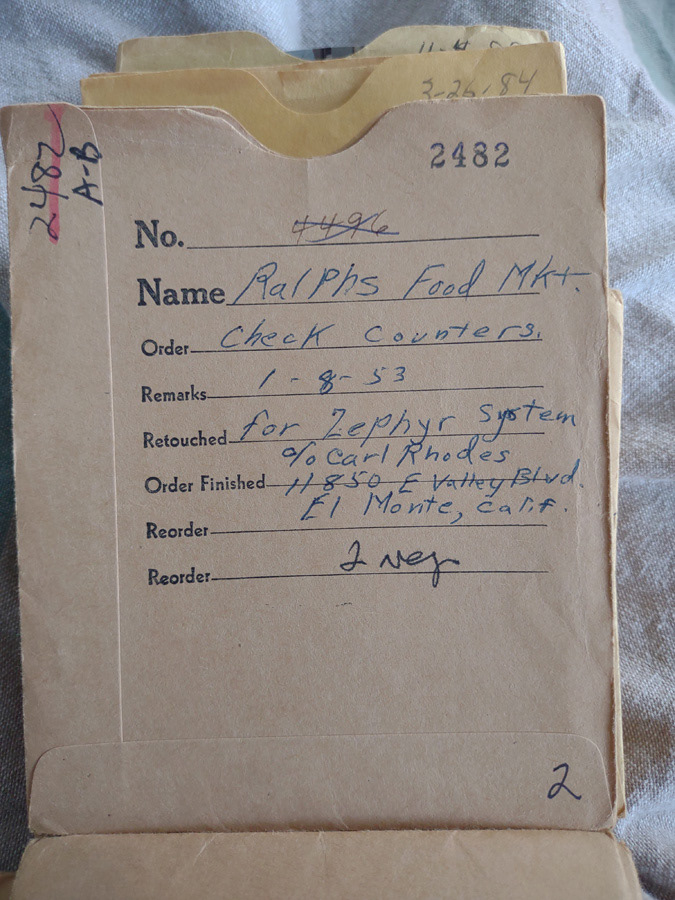 3-26-84
2482
A-B
2482
No. 4496
Name Ralphs Food Mkt.
Order Check Counters.
Remarks 1-8-53
Retouched for Zephyr System
c/o Carl Rhodes
Order Finished 11850 E Valley Blvd.
El Monte, Calif.
Reorder
Reorder 2 Neg
2